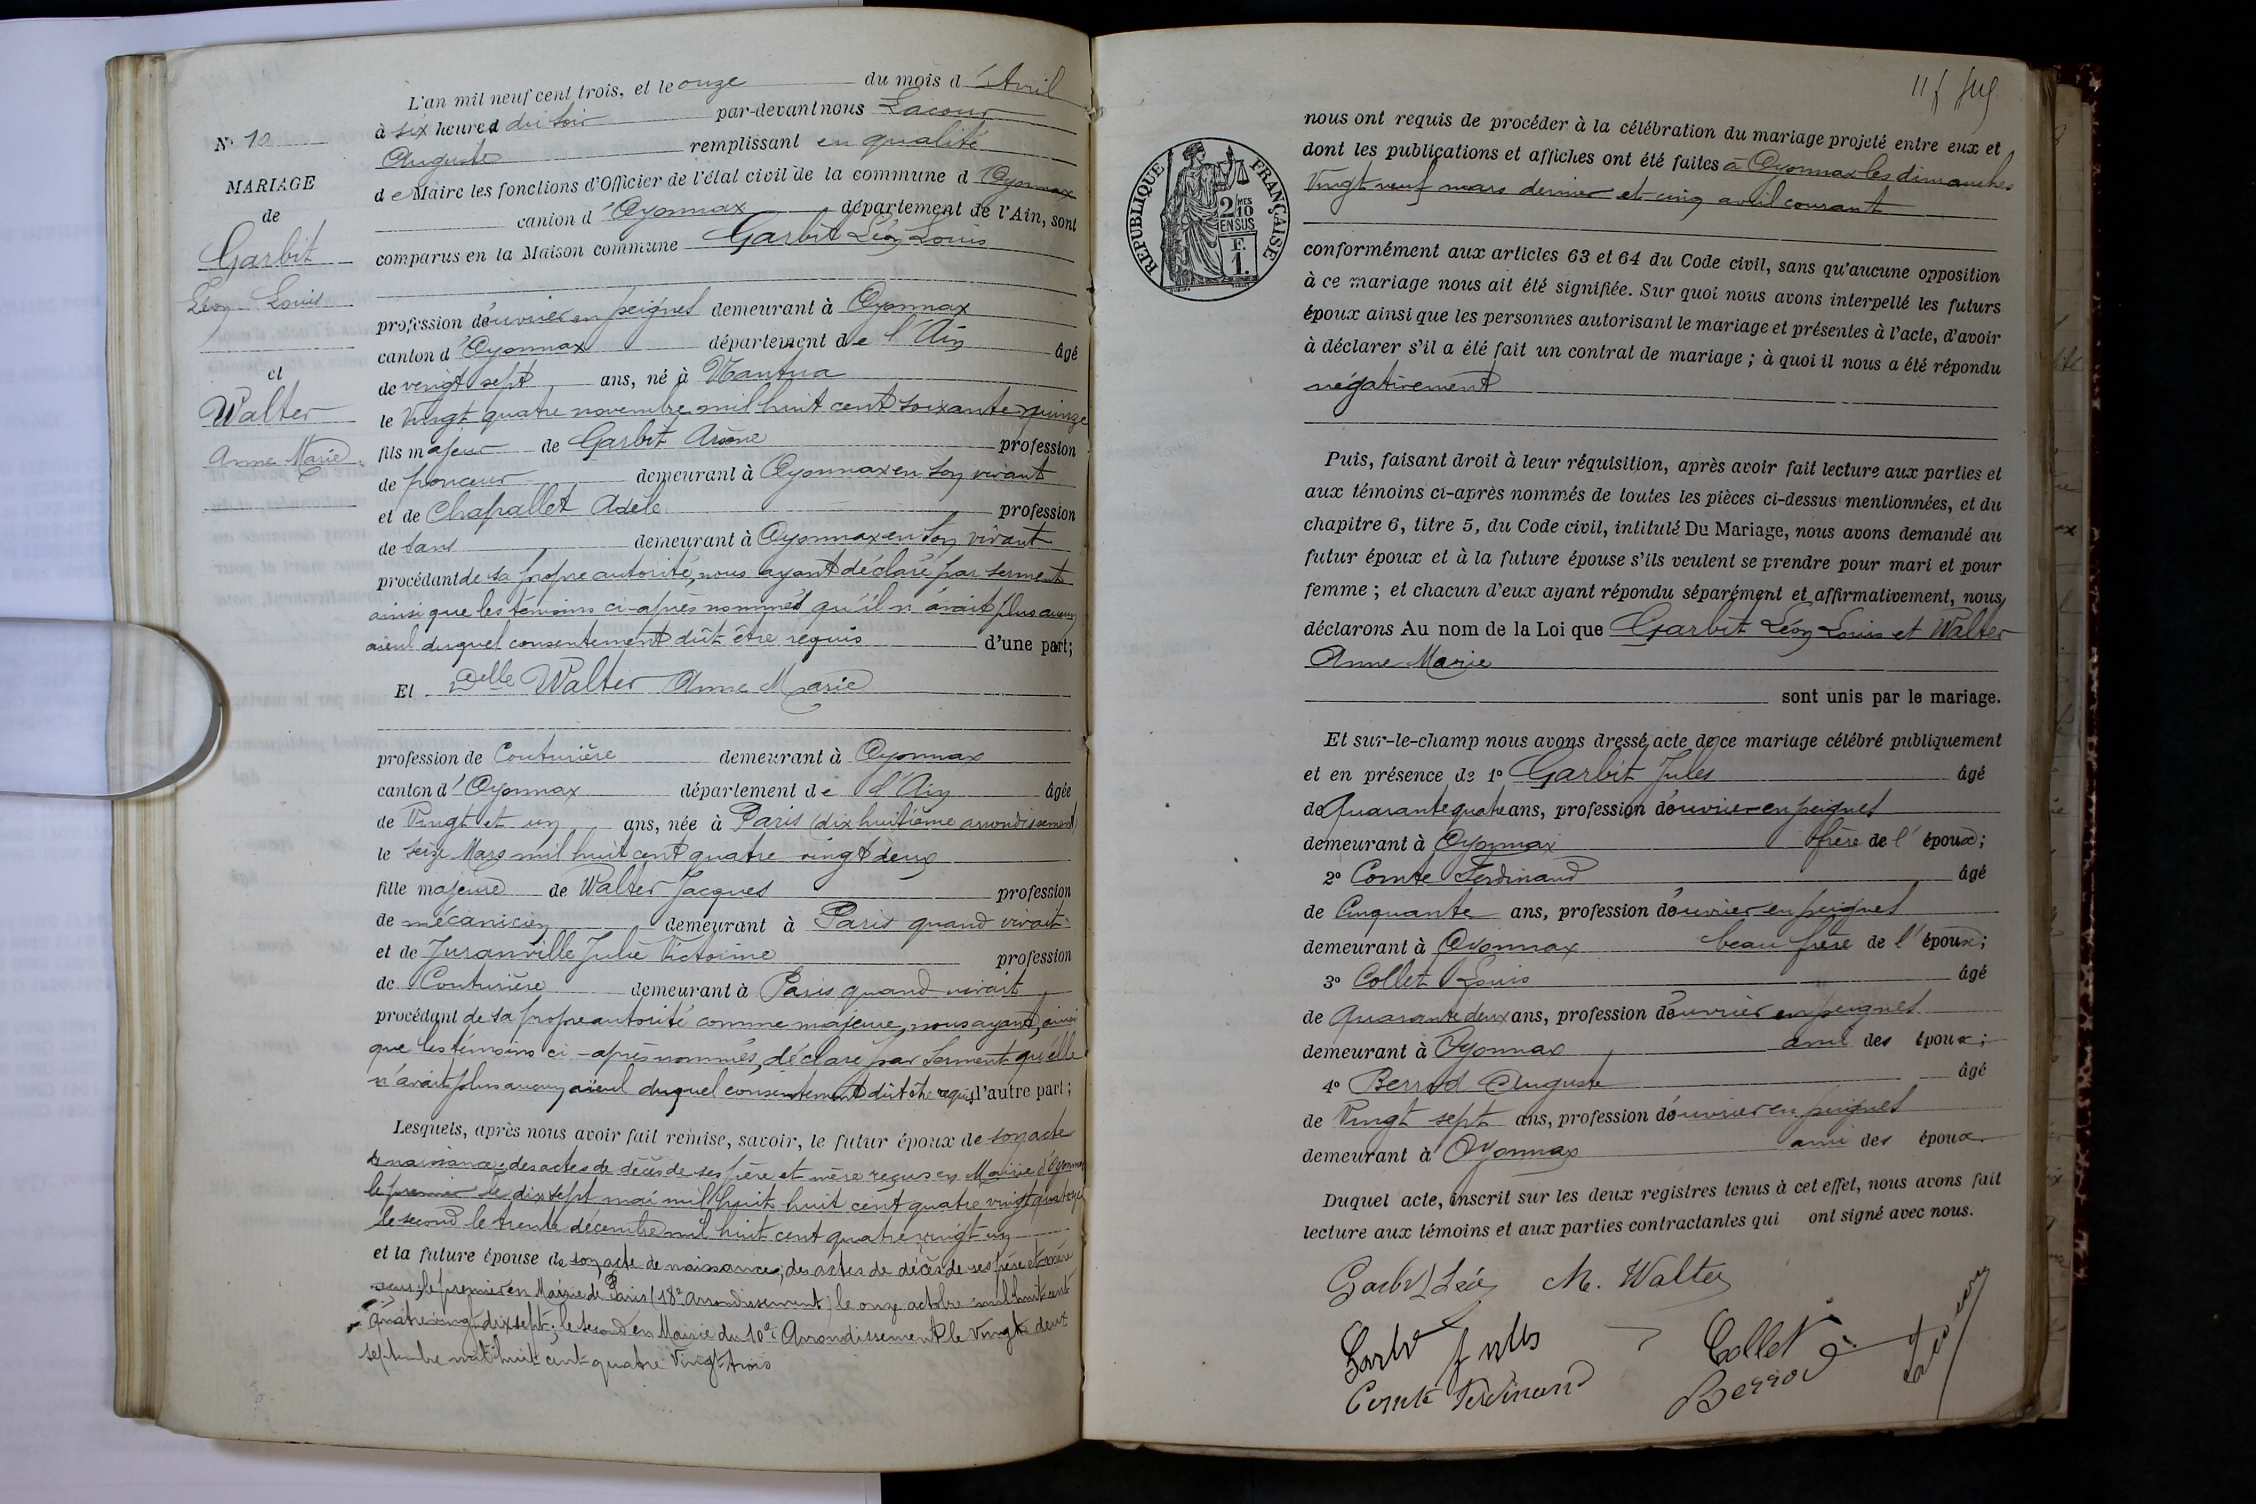 N° 12
MARIAGE
de
Garbit
Léon Louis
et
Walter
Anne Marie
L'an mil neuf cent trois, et le onze du mois d'Avril
à six heures du soir par-devant nous Lacour
Auguste remplissant en qualité
de Maire les fonctions d'Officier de l'état civil de la commune d'Oyonnax
canton d'Oyonnax département de l'Ain, sont
comparus en la Maison commune Garbit Léon Louis
profession d'ouvrier en peignes demeurant à Oyonnax
canton d'Oyonnax département de l'Ain âgé
de vingt sept ans, né à Nantua
le vingt quatre novembre mil huit cent soixante quinze
fils majeur de Garbit Arsène profession
de ponceur demeurant à Oyonnax en son vivant
et de Chapallet Adèle profession
de sans demeurant à Oyonnax en son vivant
procédant de sa propre autorité, nous ayant déclaré par serment
ainsi que les témoins ci-après nommés qu'il n'avait plus aucun
aïeul duquel consentement dût être requis d'une part;
Et Delle Walter Anne Marie
profession de Couturière demeurant à Oyonnax
canton d'Oyonnax département de l'Ain âgée
de Vingt et un ans, née à Paris (dix huitième arrondissement)
le seize Mars mil huit cent quatre vingt deux
fille majeure de Walter Jacques profession
de mécanicien demeurant à Paris quand vivait
et de Juranville Julie Victorine profession
de Couturière demeurant à Paris quand vivait
procédant de sa propre autorité comme majeure, nous ayant, ainsi
que les témoins ci-après nommés, déclaré par serment qu'elle
n'avait plus aucun aïeul duquel consentement dût être requis d'autre part;
Lesquels, après nous avoir fait remise, savoir, le futur époux de son acte
de naissance, des actes de décès de ses père et mère reçus en Mairie d'Oyonnax
le premier le dix sept mai mil huit huit cent quatre vingt
le second le trente décembre mil huit cent quatre vingt un
et la future épouse de son acte de naissance, des actes de décès de ses père et mère
reçus, le premier en Mairie de Paris (18e arrondissement) le onze octobre mil huit cent
quatre vingt dix sept; le second en Mairie du 10e Arrondissement le vingt deux
septembre mil huit cent quatre vingt trois
REPUBLIQUE FRANÇAISE
2/10 MES
EN SUS
F.
1.
nous ont requis de procéder à la célébration du mariage projeté entre eux et
dont les publications et affiches ont été faites à Oyonnax les dimanches
Vingt neuf mars dernier et cinq avril courant
conformément aux articles 63 et 64 du Code civil, sans qu'aucune opposition
à ce mariage nous ait été signifiée. Sur quoi nous avons interpellé les futurs
époux ainsi que les personnes autorisant le mariage et présentes à l'acte, d'avoir
à déclarer s'il a été fait un contrat de mariage; à quoi il nous a été répondu
négativement
Puis, faisant droit à leur réquisition, après avoir fait lecture aux parties et
aux témoins ci-après nommés de toutes les pièces ci-dessus mentionnées, et du
chapitre 6, titre 5, du Code civil, intitulé Du Mariage, nous avons demandé au
futur époux et à la future épouse s'ils veulent se prendre pour mari et pour
femme; et chacun d'eux ayant répondu séparément et affirmativement, nous
déclarons Au nom de la Loi que Garbit Léon Louis et Walter
Anne Marie
sont unis par le mariage.
Et sur-le-champ nous avons dressé acte de ce mariage célébré publiquement
et en présence de 1° Garbit Jules âgé
de Quarante quatre ans, profession d'ouvrier en peignes
demeurant à Oyonnax frère de l'époux;
2° Comte Ferdinand âgé
de Cinquante ans, profession d'ouvrier en peignes
demeurant à Oyonnax beau frère de l'époux;
3° Collet Louis âgé
de Quarante deux ans, profession d'ouvrier en peignes
demeurant à Oyonnax ami des époux;
4° Berrod Auguste âgé
de Vingt sept ans, profession d'ouvrier en peignes
demeurant à Oyonnax ami des époux
Duquel acte, inscrit sur les deux registres tenus à cet effet, nous avons fait
lecture aux témoins et aux parties contractantes qui ont signé avec nous.
Garbit Léon M. Walter
Garbit Jules Collet
Comte Ferdinand Berrod